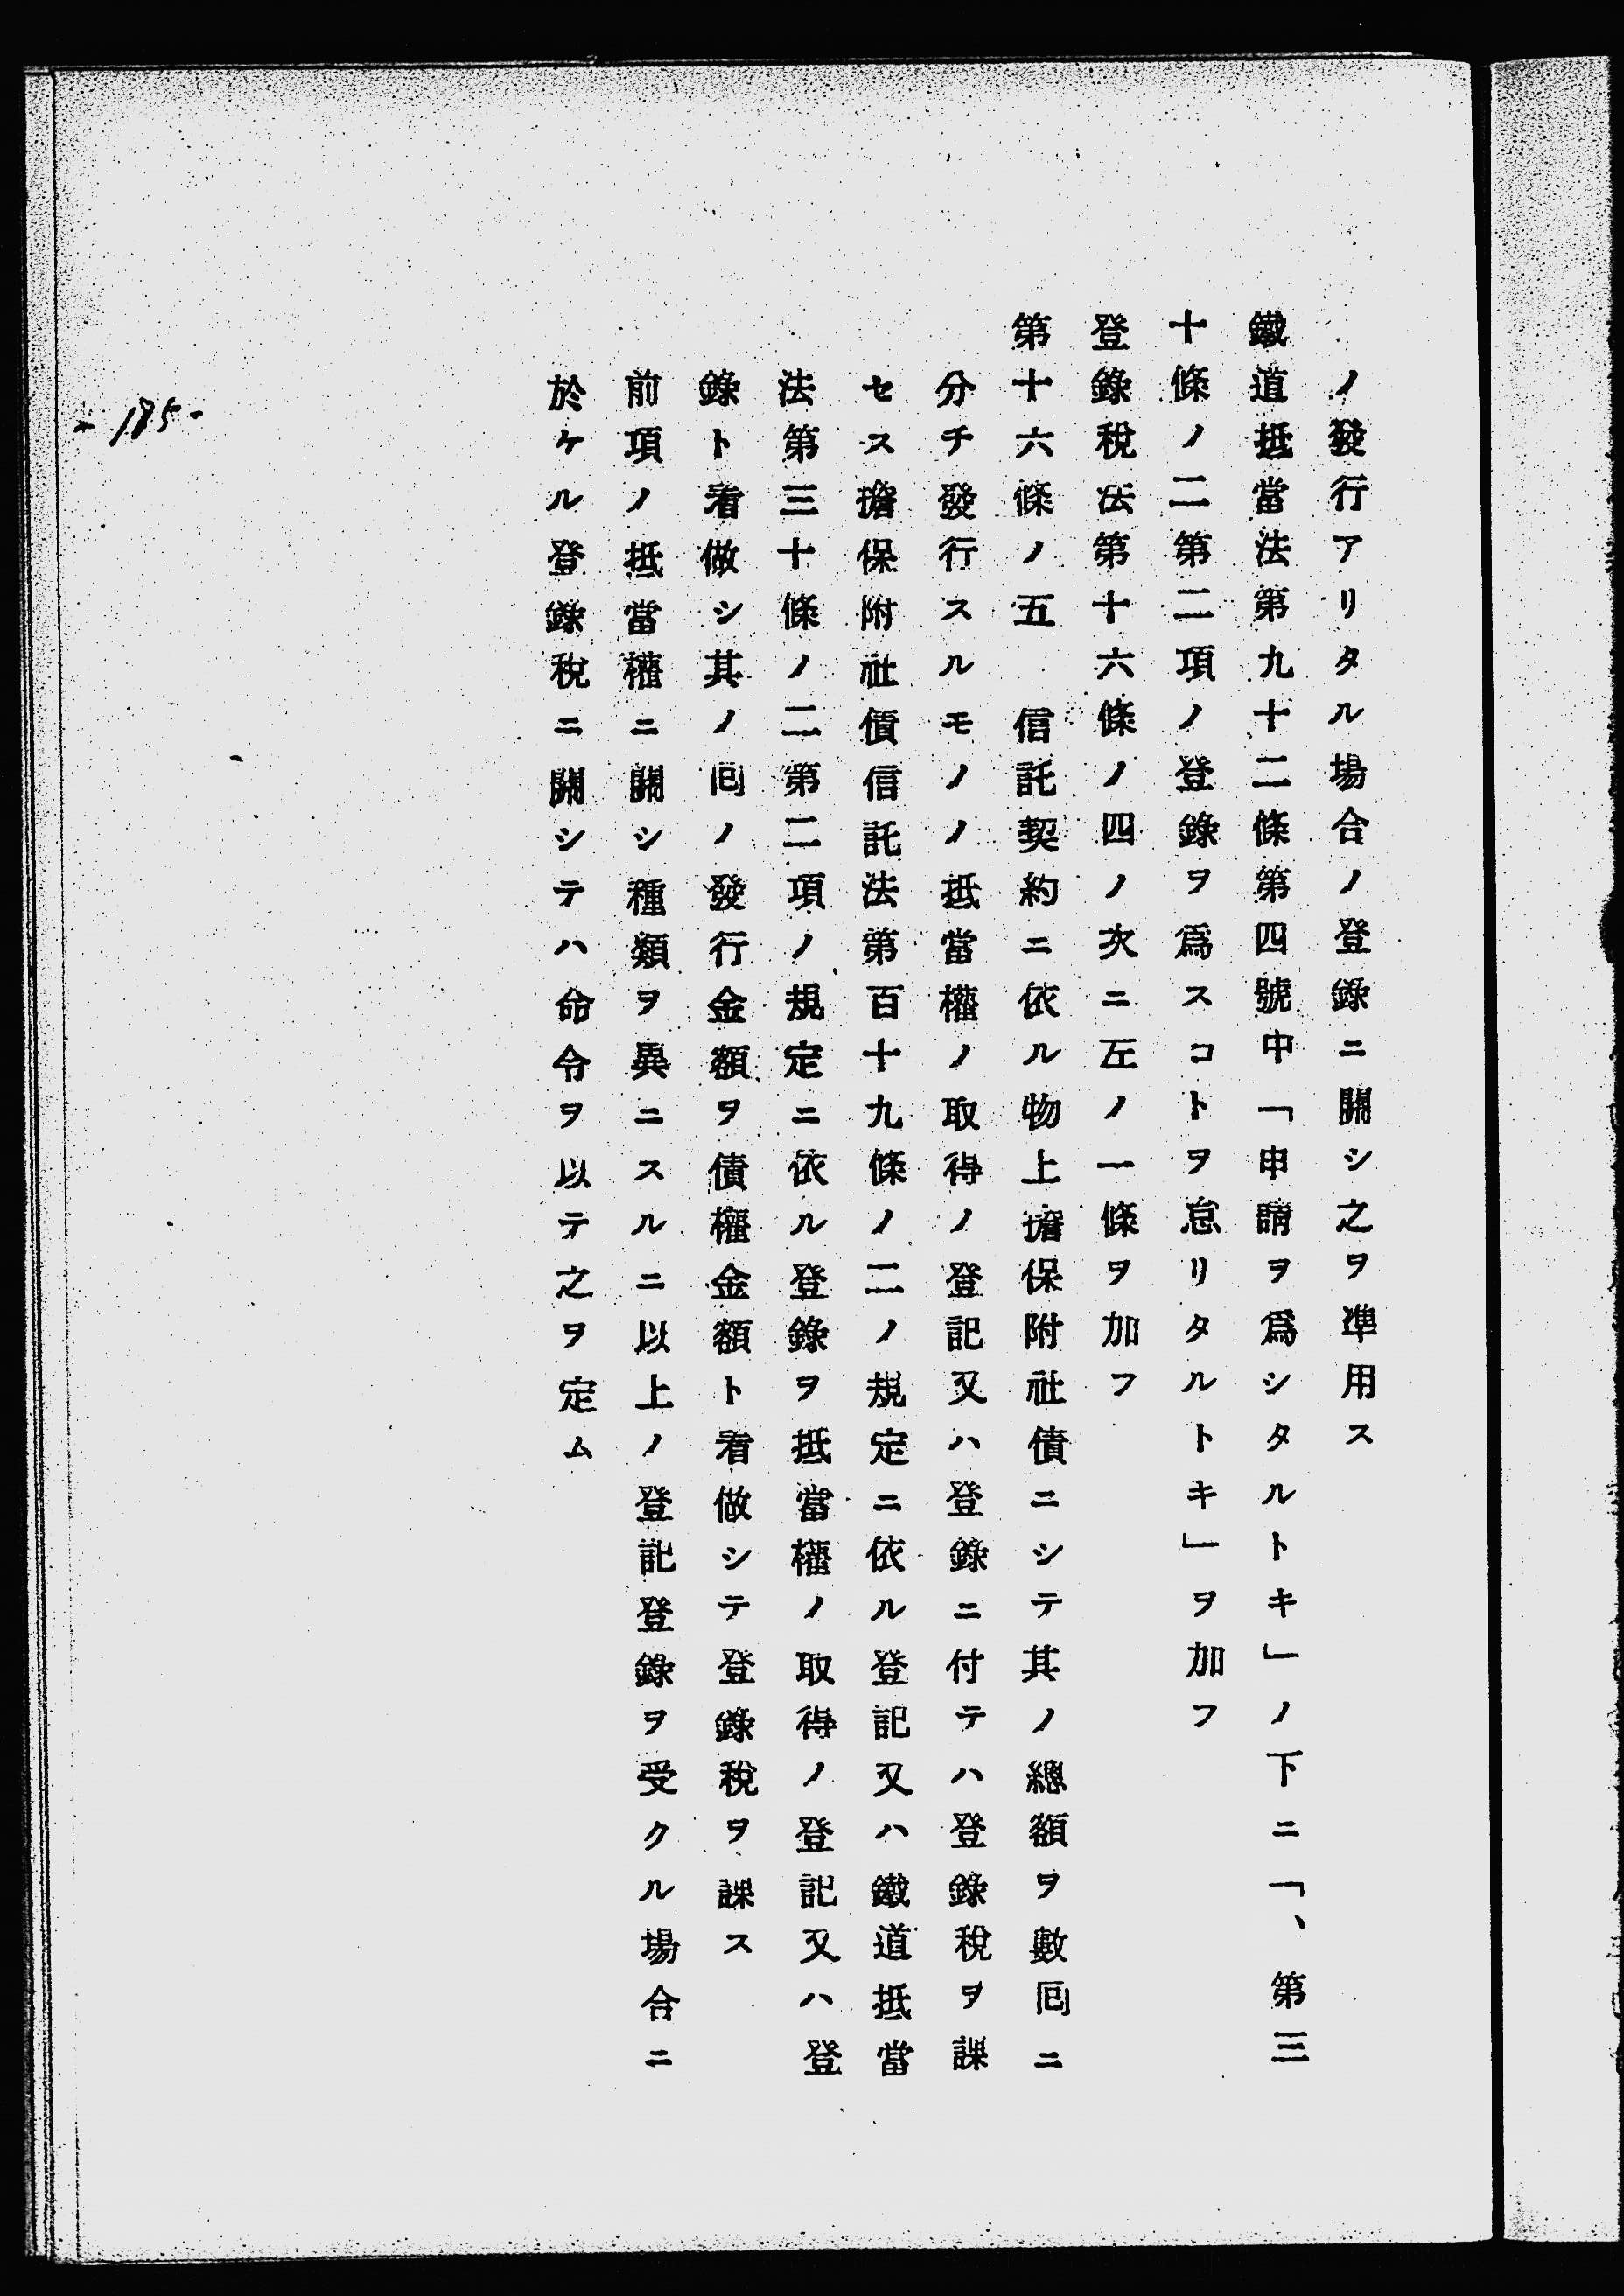 ノ發行アリタル場合ノ登錄ニ關シ之ヲ準用ス
鐵道抵當法第九十二條第四號中「申請ヲ爲シタルトキ」ノ下ニ「、第三
十條ノ二第二項ノ登錄ヲ爲スコトヲ怠リタルトキ」ヲ加フ
登錄稅法第十六條ノ四ノ次ニ左ノ一條ヲ加フ
第十六條ノ五　信託契約ニ依ル物上擔保附社債ニシテ其ノ總額ヲ數囘ニ
分チ發行スルモノノ抵當權ノ取得ノ登記又ハ登錄ニ付テハ登錄稅ヲ課
セス擔保附社債信託法第百十九條ノ二ノ規定ニ依ル登記又ハ鐵道抵當
法第三十條ノ二第二項ノ規定ニ依ル登錄ヲ抵當權ノ取得ノ登記又ハ登
錄ト看做シ其ノ囘ノ發行金額ヲ債權金額ト看做シテ登錄稅ヲ課ス
前項ノ抵當權ニ關シ種類ヲ異ニスル二以上ノ登記登錄ヲ受クル場合ニ
於ケル登錄稅ニ關シテハ命令ヲ以テ之ヲ定ム
- 185 -